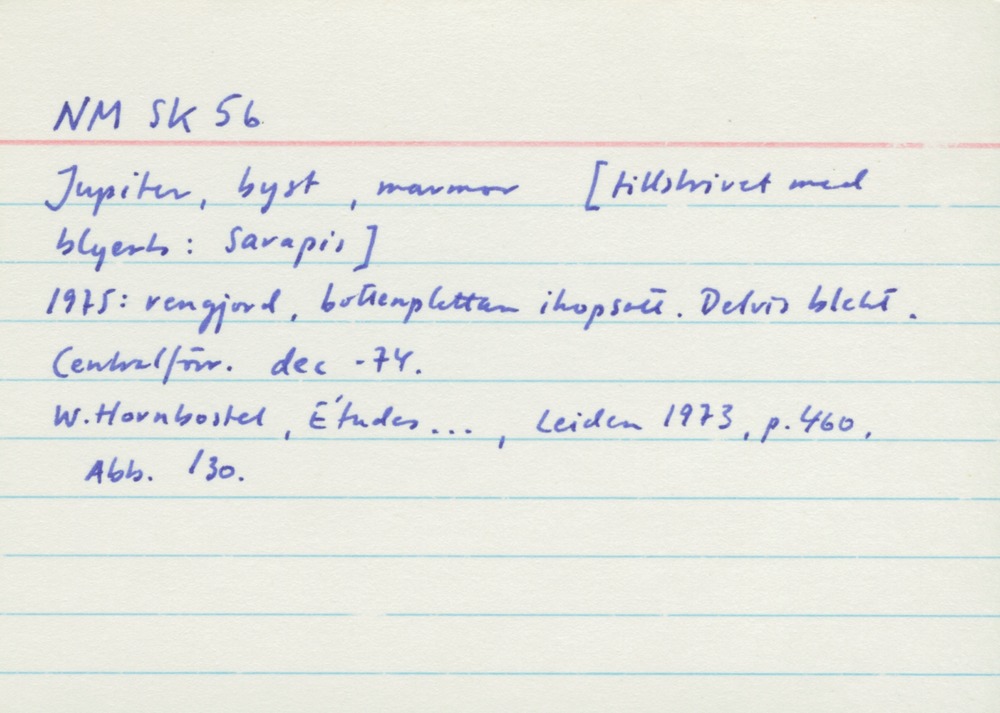 NM SK 56
Jupiter, byst, marmor [tillskrivet med
blyerts: Sarapis]
1975: rengjord, bottenplattan ihopsatt. Delvis blekt.
Centralförr. dec -74.
W. Hornbostel, Études..., Leiden 1973, p. 460,
Abb. 130.